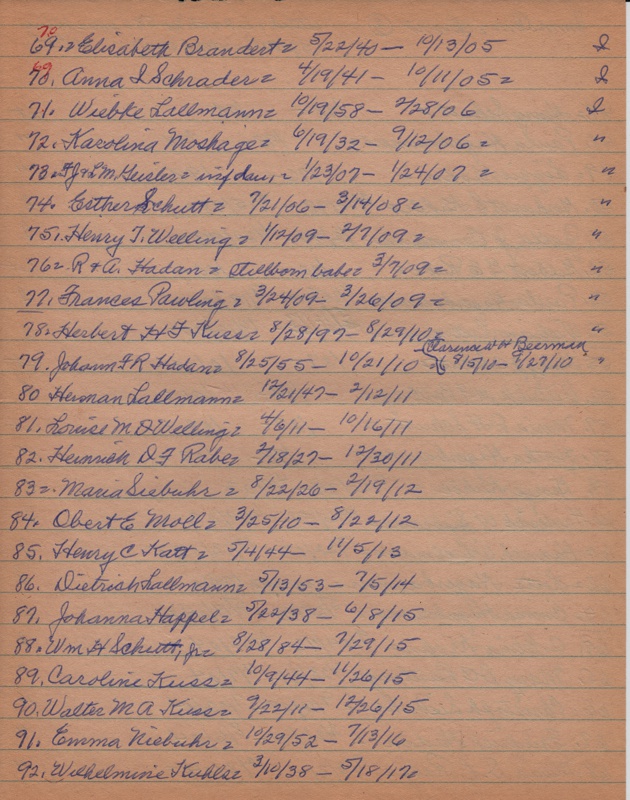 70
69. = Elisabeth Brandert = 5/22/40 - 10/13/05 I
69
70. Anna I Schrader = 4/19/41 - 10/11/05 = I
71. Wiebke Lallmann = 10/19/58 - 2/28/06 I
72. Karolina Moshage = 6/19/32 - 9/12/06 = "
73. = F J & L M Geisler = inf dau, = 1/23/07 - 1/24/07 = "
74. Esther Schutt = 7/21/06 - 3/14/08 = "
75. Henry T. Welling = 1/12/09 - 2/7/09 = "
76 = R & A. Hadan = stillborn babe = 3/7/09 = "
77. Frances Pawling = 3/24/09 - 3/26/09 = "
78. Herbert H F Kuss = 8/28/97 - 8/29/10 = "
Clarence W H Beerman
79. Johann F R Hadan = 8/25/55 - 10/21/10 { 8/15/10 - 9/27/10 "
80 Herman Lallmann = 12/21/47 - 2/12/11
81. Louise M D Welling = 4/6/11 - 10/16/11
82. Heinrich D F Rabe = 2/18/27 - 12/30/11
83 = Maria Siebuhr = 8/22/26 - 2/19/12
84. Obert E Moll = 3/25/10 - 8/22/12
85. Henry C Katt = 5/4/44 - 11/5/13
86. Dietrich Lallmann = 5/13/53 - 7/5/14
87. Johanna Happel = 5/22/38 - 6/8/15
88. Wm H Schutt, Jr = 8/28/84 - 7/29/15
89. Caroline Kuss = 10/9/44 - 11/26/15
90. Walter M A Kuss = 9/22/11 - 12/26/15
91. Emma Niebuhr = 10/29/52 - 7/13/16
92. Wilhelmine Kuhls = 3/10/38 - 5/18/17 =